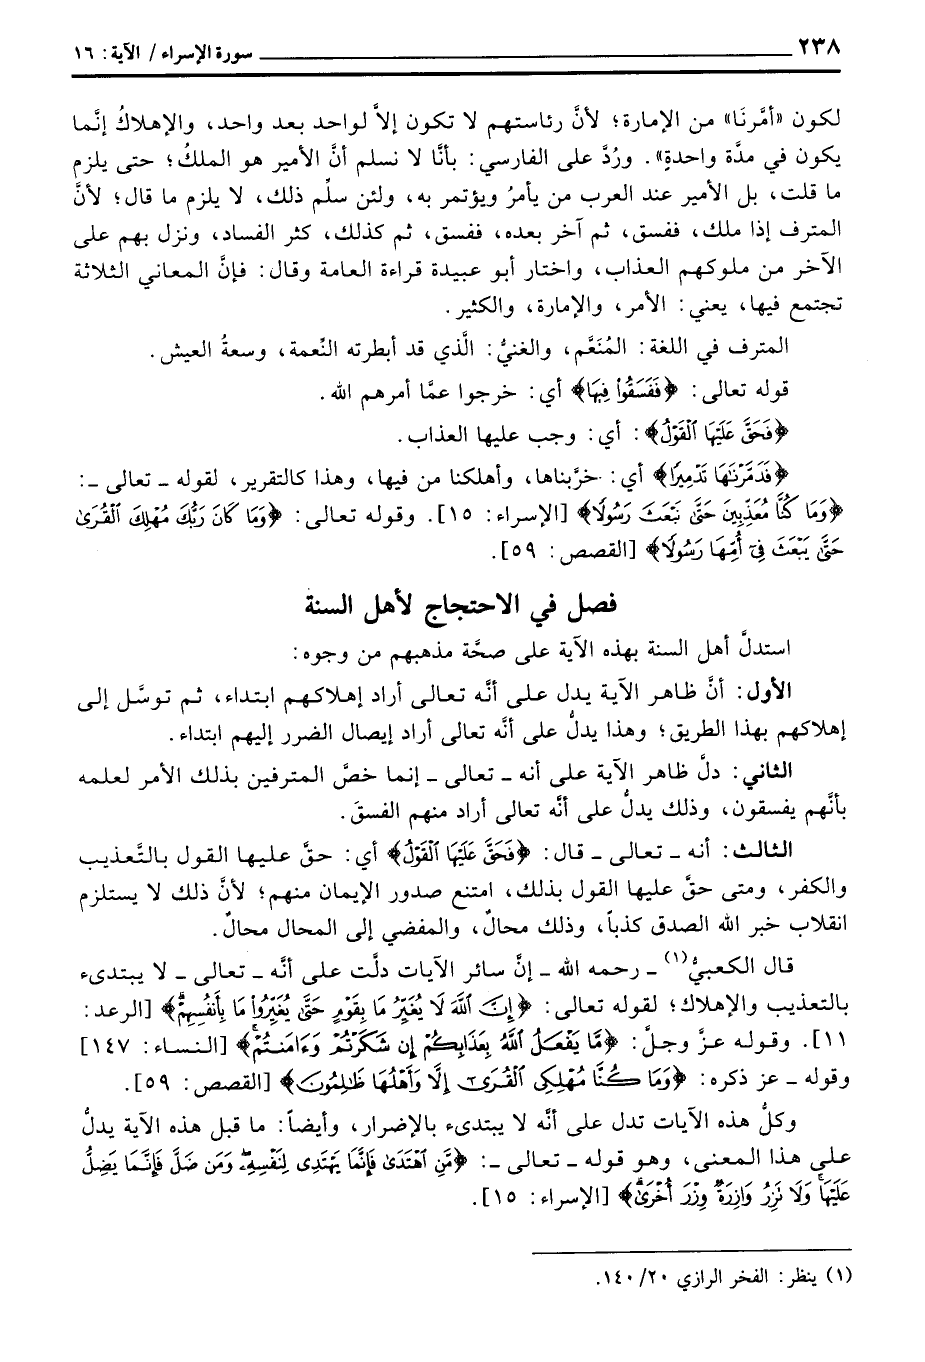 ٢٣٨ سورة الإسراء / الآية: ١٦
لكون «أمَّرنَا» من الإمارة؛ لأنَّ رئاستهم لا تكون إلاَّ لواحد بعد واحد، والإهلاكُ إنَّما
يكون في مدَّة واحدةٍ». ورُدَّ على الفارسي: بأنَّا لا نسلم أنَّ الأمير هو الملكُ؛ حتى يلزم
ما قلت، بل الأمير عند العرب من يأمرُ ويؤتمر به، ولئن سلِّم ذلك، لا يلزم ما قال؛ لأنَّ
المترف إذا ملك، ففسق، ثم آخر بعده، ففسق، ثم كذلك، كثر الفساد، ونزل بهم على
الآخر من ملوكهم العذاب، واختار أبو عبيدة قراءة العامة وقال: فإنَّ المعاني الثلاثة
تجتمع فيها، يعني: الأمر، والإمارة، والكثير.
المترف في اللغة: المُنَعَّم، والغنيُّ: الَّذي قد أبطرته النِّعمة، وسعةُ العيش.
قوله تعالى: ﴿فَفَسَقُوا۟ فِيهَا﴾ أي: خرجوا عمَّا أمرهم الله.
﴿فَحَقَّ عَلَيْهَا ٱلْقَوْلُ﴾: أي: وجب عليها العذاب.
﴿فَدَمَّرْنَـٰهَا تَدْمِيرًا﴾ أي: خرَّبناها، وأهلكنا من فيها، وهذا كالتقرير، لقوله ـ تعالى ـ:
﴿وَمَا كُنَّا مُعَذِّبِينَ حَتَّىٰ نَبْعَثَ رَسُولًا﴾ [الإسراء: ١٥]. وقوله تعالى: ﴿وَمَا كَانَ رَبُّكَ مُهْلِكَ ٱلْقُرَىٰ
حَتَّىٰ يَبْعَثَ فِىٓ أُمِّهَا رَسُولًا﴾ [القصص: ٥٩].
فصل في الاحتجاج لأهل السنة
استدلَّ أهل السنة بهذه الآية على صحَّة مذهبهم من وجوه:
الأول: أنَّ ظاهر الآية يدل على أنَّه تعالى أراد إهلاكهم ابتداء، ثم توسَّل إلى
إهلاكهم بهذا الطريق؛ وهذا يدلُّ على أنَّه تعالى أراد إيصال الضرر إليهم ابتداء.
الثاني: دلَّ ظاهر الآية على أنه ـ تعالى ـ إنما خصَّ المترفين بذلك الأمر لعلمه
بأنَّهم يفسقون، وذلك يدلُّ على أنَّه تعالى أراد منهم الفسقَ.
الثالث: أنه ـ تعالى ـ قال: ﴿فَحَقَّ عَلَيْهَا ٱلْقَوْلُ﴾ أي: حقَّ عليها القول بالتَّعذيب
والكفر، ومتى حقَّ عليها القول بذلك، امتنع صدور الإيمان منهم؛ لأنَّ ذلك لا يستلزم
انقلاب خبر الله الصدق كذباً، وذلك محالٌ، والمفضي إلى المحال محالٌ.
قال الكعبيُّ(١) ـ رحمه الله ـ إنَّ سائر الآيات دلَّت على أنَّه ـ تعالى ـ لا يبتدىء
بالتعذيب والإهلاك؛ لقوله تعالى: ﴿إِنَّ ٱللَّهَ لَا يُغَيِّرُ مَا بِقَوْمٍ حَتَّىٰ يُغَيِّرُوا۟ مَا بِأَنفُسِهِمْ﴾ [الرعد:
١١]. وقوله عزَّ وجلَّ: ﴿مَّا يَفْعَلُ ٱللَّهُ بِعَذَابِكُمْ إِن شَكَرْتُمْ وَءَامَنتُمْ﴾ [النساء: ١٤٧]
وقوله ـ عز ذكره: ﴿وَمَا كُنَّا مُهْلِكِى ٱلْقُرَىٰٓ إِلَّا وَأَهْلُهَا ظَـٰلِمُونَ﴾ [القصص: ٥٩].
وكلُّ هذه الآيات تدل على أنَّه لا يبتدىء بالإضرار، وأيضاً: ما قبل هذه الآية يدلُّ
على هذا المعنى، وهو قوله ـ تعالى ـ: ﴿مَّنِ ٱهْتَدَىٰ فَإِنَّمَا يَهْتَدِى لِنَفْسِهِۦ وَمَن ضَلَّ فَإِنَّمَا يَضِلُّ
عَلَيْهَا وَلَا تَزِرُ وَازِرَةٌ وِزْرَ أُخْرَىٰ﴾ [الإسراء: ١٥].
(١) ينظر: الفخر الرازي ٢٠/ ١٤٠.